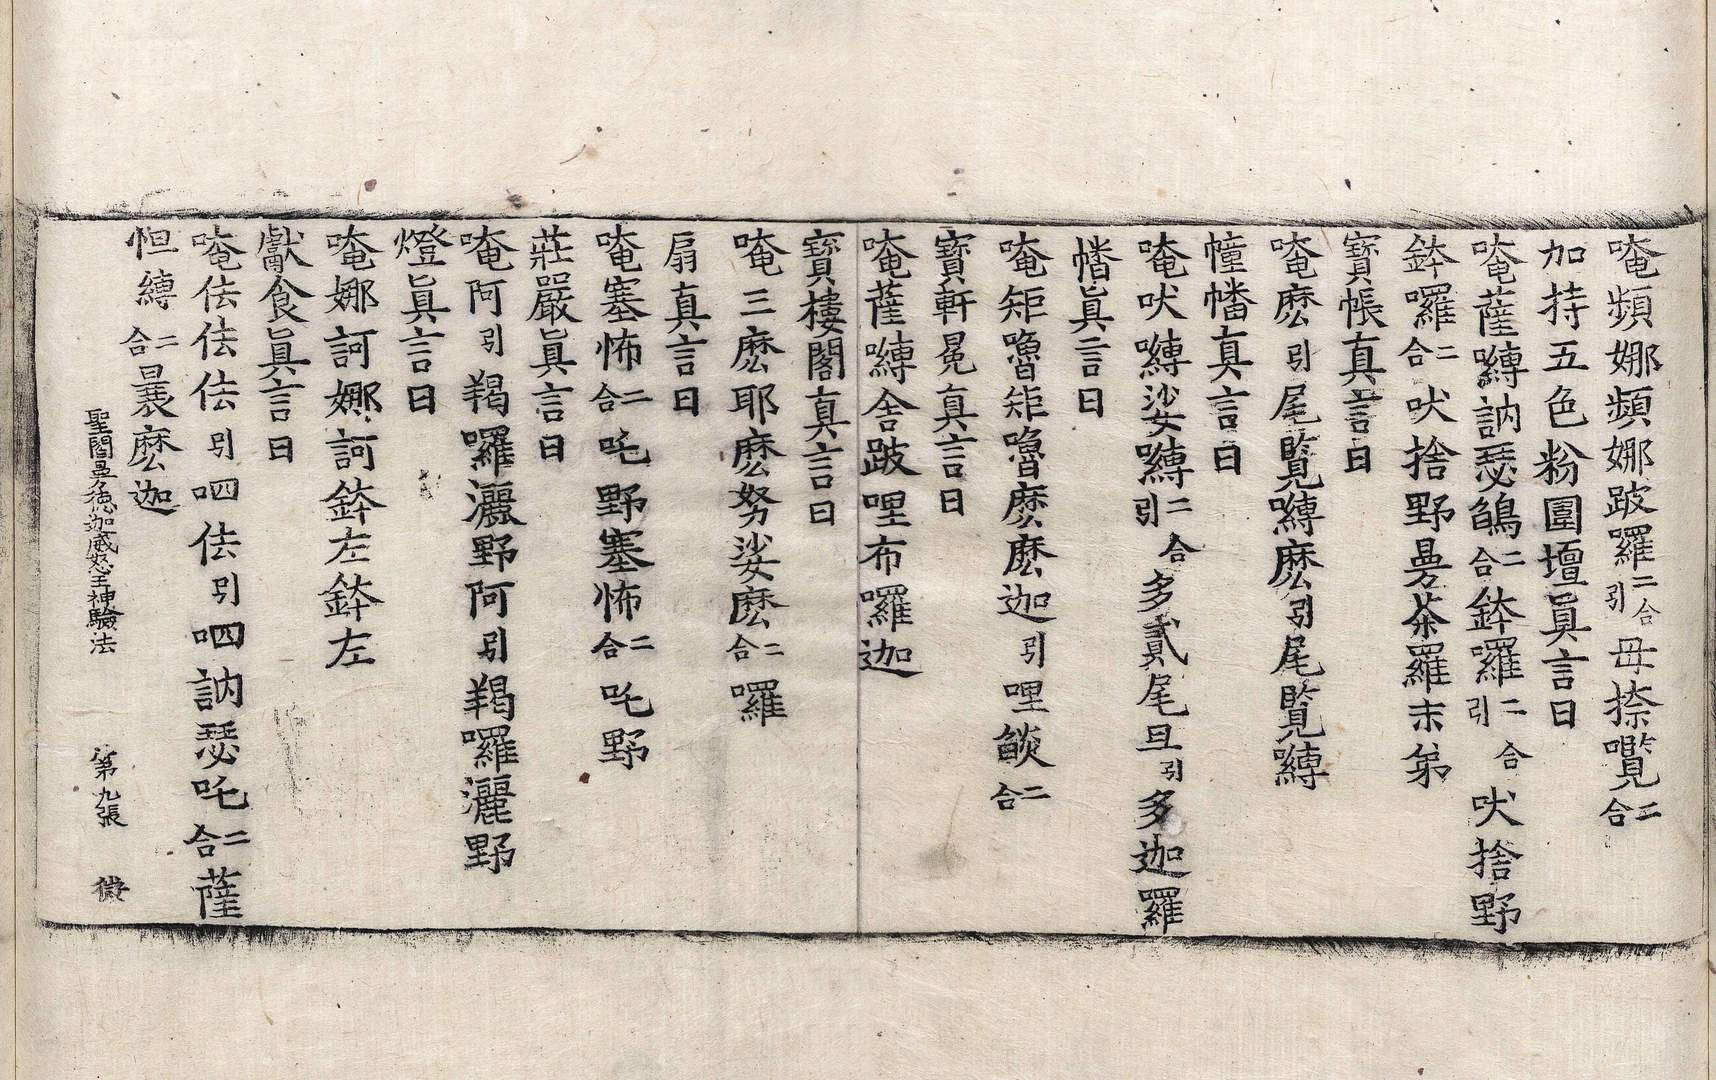 唵頻娜頻娜跛囉二合引毋捺囕二合
加持五色粉圍壇眞言曰
唵薩嚩訥瑟鵮二合鉢囉二合引吠捨野
鉢囉二合吠捨野曼荼羅末弟
寶帳真言曰
唵麽引尾覽嚩麽引尾覽嚩
幢幡真言曰
唵吠嚩娑嚩二合引多貳尾旦引多迦羅
幡眞言曰
唵矩嚕矩嚕麽麽迦引哩㷔二合
寶軒冕真言曰
唵薩嚩舍跛哩布囉迦
寶樓閣真言曰
唵三麽耶麽努娑麽二合囉
扇真言曰
唵塞怖二合吒野塞怖二合吒野
莊嚴眞言曰
唵阿引羯囉灑野阿引羯囉灑野
燈眞言曰
唵娜訶娜訶鉢左鉢左
獻食眞言曰
唵佉佉佉引呬佉引呬訥瑟吒二合薩
怛嚩二合曩麽迦
聖閻曼德迦威怒王神驗法 第九張 微